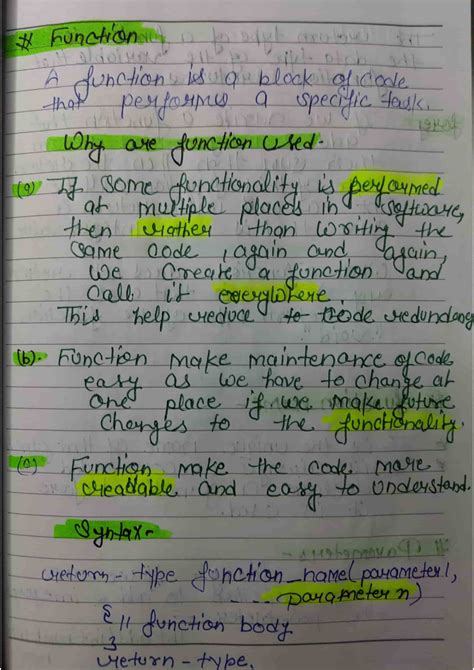 ※ Function
A function is a block of code
that performs a specific task.
Why are function used-
(a) If some functionality is performed
at multiple places in software,
then rather than writing the
same code, again and again,
we create a function and
call it everywhere.
This help reduce to code redundancy
(b). Function make maintenance of code
easy as we have to change at
one place if we make future
changes to the functionality.
(c) Function make the code more
readable and easy to understand.
Syntax-
return-type function_name(parameter1,
parameter n)
{ // function body
}
return-type.